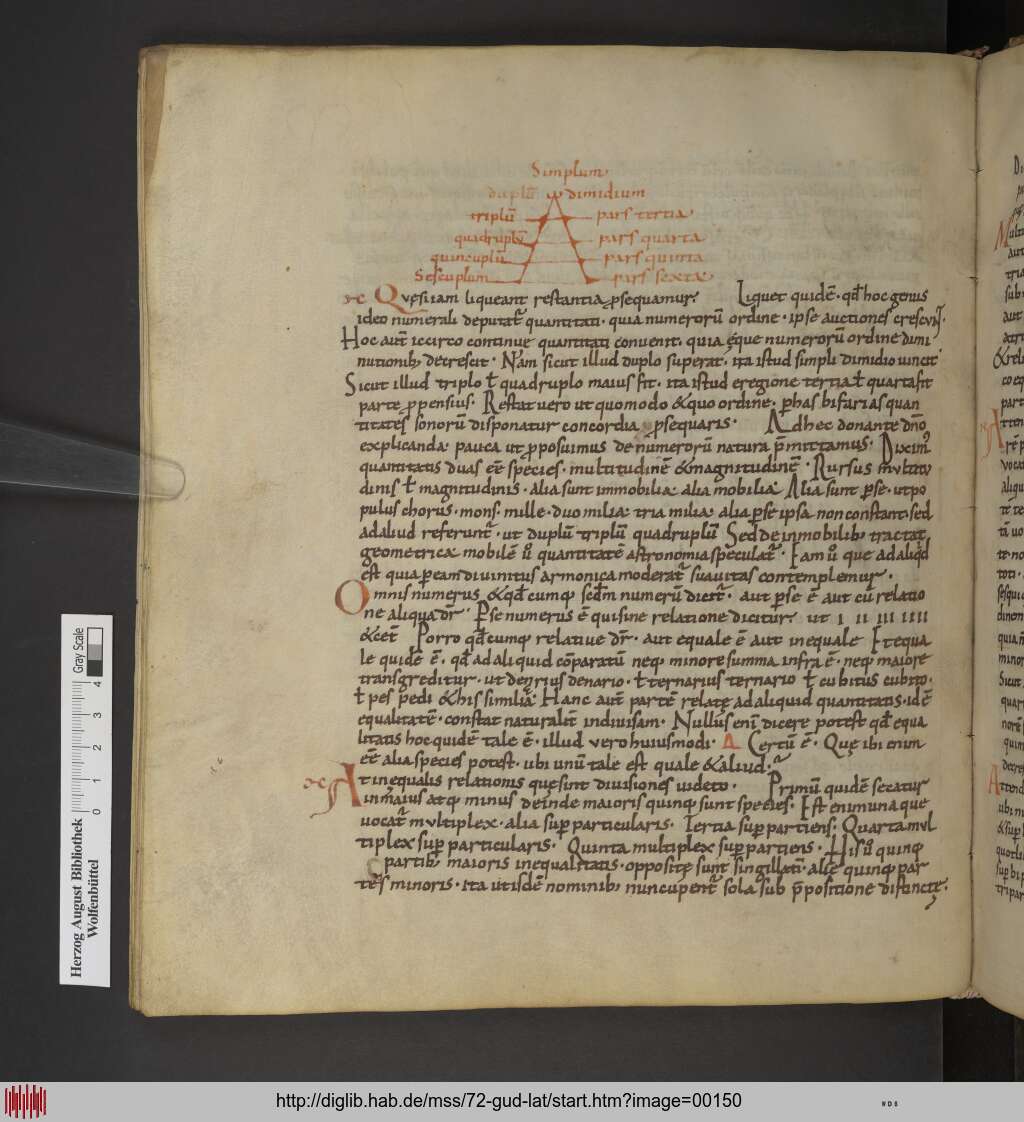 Simplum
duplū dimidium
triplū pars tertia
quadruplū pars quarta
quincuplū pars quinta
Sescuplum pars sexta
Quęsi iam liqueant restantia ꝓsequamur. Liquet quidē · qđ hoc genus
ideo numerali deputat᷑ quantitati · quia numerorū ordine · ipse auctiones crescunt.
Hoc aut̄ iccirco continuę quantitati conuenit · quia ęque numerorū ordine dimi
nutionib; decrescit · Nam sicut illud duplo superat · ita istud simpli dimidio uincit
Sicut illud triplo ł quadruplo maius fit · ita istud e regione tertia ł quarta fit
parte ꝓpensius · Restat uero ut quomodo & quo ordine · ꝑ has bifarias quan
titates sonorū disponatur concordia ꝓsequaris · Ad hec donante dn̄o
explicanda pauca ut ꝓposuimus de numerorū natura p̄mittamus · Dixim᷒
quantitatis duas eē species · multitudinē & magnitudinē · Rursus multitu
dinis ł magnitudinis · alia sunt immobilia alia mobilia · Alia sunt ꝑ se · ut po
pulus chorus · mons · mille · duo milia · tria milia alia ꝑ se ipsa non constant · sed
ad aliud referunt᷑ · ut duplū triplū quadruplū Sed de inmobilib; tractat
geometrica mobilē ů quantitatē astronomia speculat᷑ · Eam ů que ad aliqđ
est quia ꝑ eam diuinitus armonica moderat᷑ suauitas contemplemur ·
Omnis numerus & qđcumq; scdm numerū dicit᷑ · aut ꝑ se ē aut cū relatio
ne aliqua dr̄ · Per se numerus ē qui sine relatione dicitur ut I II III IIII
&cet̄ Porro qđcumq; relatiue dr̄ · aut equale ē aut inequale Et equa
le quidē ē · qđ ad aliquid cōparatū neq; minore summa infra ē · neq; maiore
transgreditur · ut denrius denario · ł ternarius ternario ł cubitus cubito ·
ł pes pedi & his similia · Hanc aut̄ partē relatę ad aliquid quantitatis · idē
equalitatē · constat naturalit̄ indiuisam · Nullus eni dicere potest qđ equa
litatis hoc quidē tale ē · illud uero huiusmodi · A Certū ē · Quę ibi enim
eē alia species potest · ubi unū tale est quale & aliud ·
At inequalis relationis que sint diuisiones uideto · Primū quidē secatur
in maius atq; minus deinde maioris quinq; sunt species · Est enim una que
uocat᷑ multiplex · alia suꝑparticularis · Tertia suꝑpartiens · Quarta mul
tiplex suꝑ particularis · Quinta multiplex suꝑ partiens · His ů quinq;
partib; maioris inequalitatis · oppositę sunt singillati · alię quinq; par
tes minoris · ita ut isdē nominib; nuncupent᷑ sola sub p̄positione distinctę ·
Herzog August Bibliothek
Wolfenbüttel
Gray Scale
0 1 2 3 4
http://diglib.hab.de/mss/72-gud-lat/start.htm?image=00150